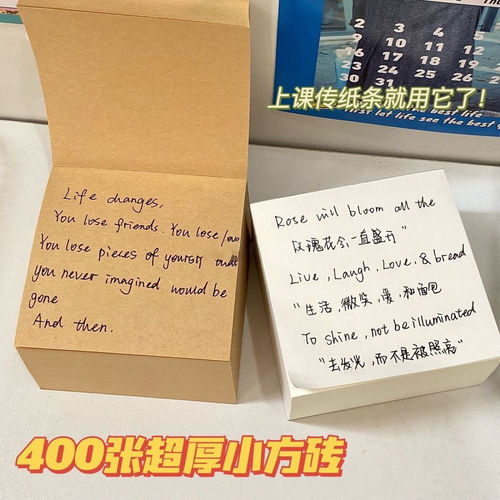 2 3 4
9 10 11
16 17 18
23 24 25
30 31
first let life see the best
上课传纸条就用它了!
Life changes,
You lose friends. You lose love
You lose pieces of yourself that
you never imagined would be
gone
And then.
Rose will bloom all the
玫瑰花会一直盛开"
Live, Laugh, Love, & bread
"生活,微笑,爱,和面包
To shine, not be illuminated
"去发光,而不是被照亮"
400张超厚小方砖